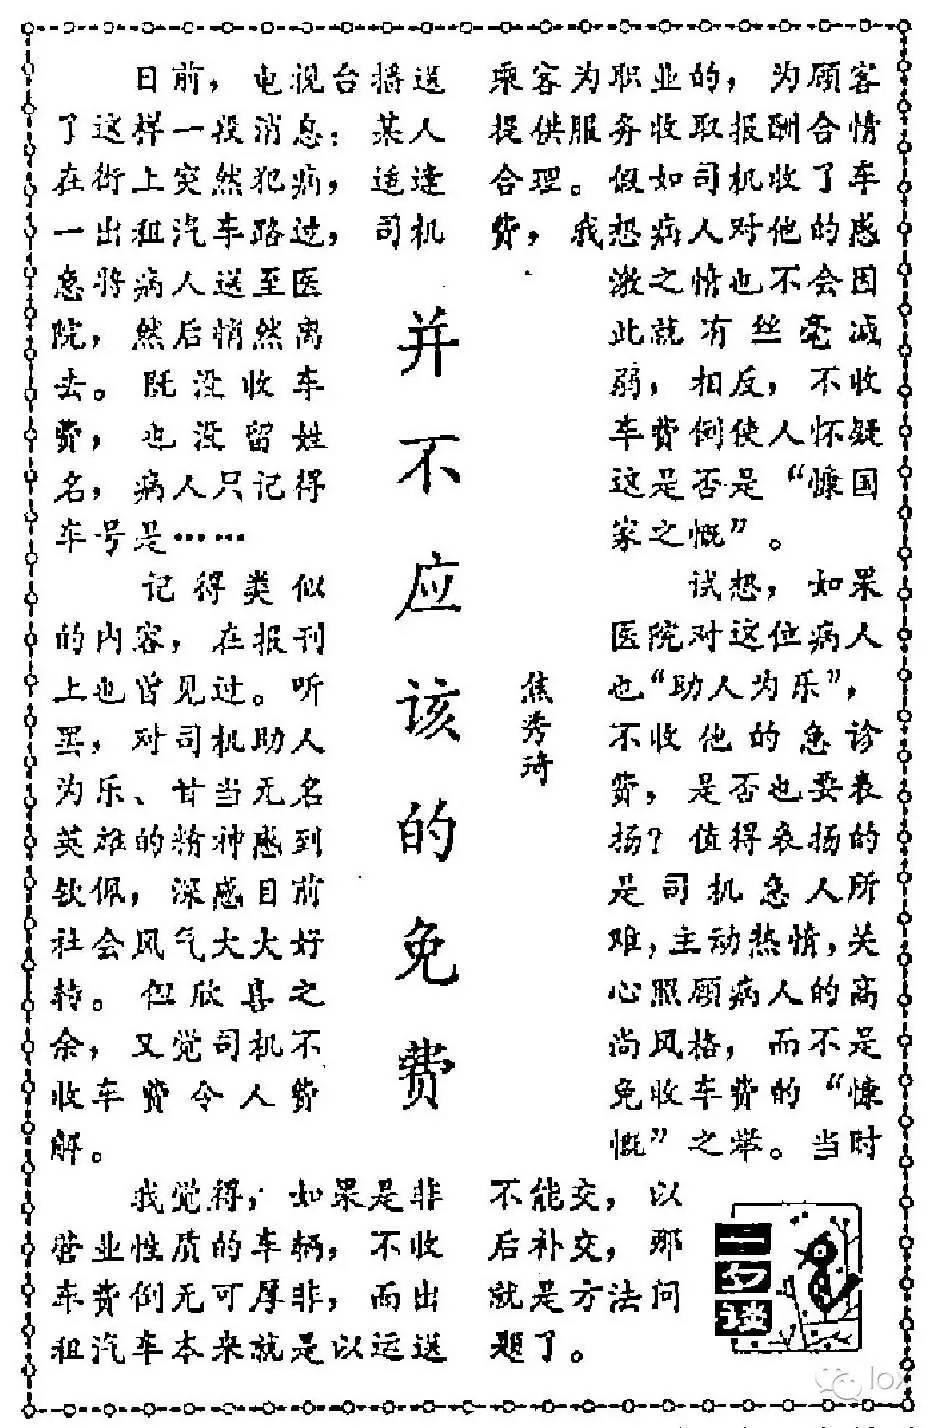 并不应该的免费
焦秀琦
日前，电视台播送
了这样一段消息：某人
在街上突然犯病，适逢
一出租汽车路过，司机
急将病人送至医
院，然后悄然离
去。既没收车
费，也没留姓
名，病人只记得
车号是……
记得类似
的内容，在报刊
上也曾见过。听
罢，对司机助人
为乐、甘当无名
英雄的精神感到
钦佩，深感目前
社会风气大大好
转。但欣喜之
余，又觉司机不
收车费令人费
解。
我觉得，如果是非
营业性质的车辆，不收
车费倒无可厚非，而出
租汽车本来就是以运送
乘客为职业的，为顾客
提供服务收取报酬合情
合理。假如司机收了车
费，我想病人对他的感
激之情也不会因
此就有丝毫减
弱，相反，不收
车费倒使人怀疑
这是否是“慷国
家之慨”。
试想，如果
医院对这位病人
也“助人为乐”，
不收他的急诊
费，是否也要表
扬？值得表扬的
是司机急人所
难，主动热情，关
心照顾病人的高
尚风格，而不是
免收车费的“慷
慨”之举。当时
不能交，以
后补交，那
就是方法问
题了。
二勺谈